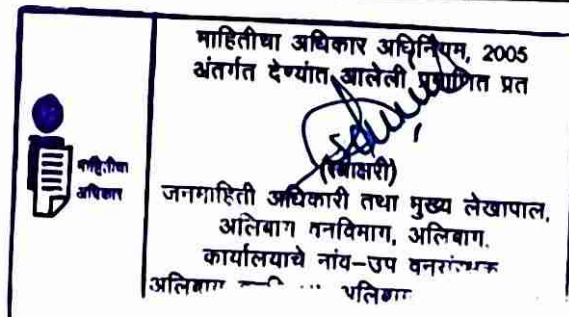 माहितीचा अधिकार अधिनियम, 2005
अंतर्गत देण्यांत आलेली प्रमाणित प्रत
(स्वाक्षरी)
माहितीचा
अधिकार
जनमाहिती अधिकारी तथा मुख्य लेखापाल,
अलिबाग वनविभाग, अलिबाग.
कार्यालयाचे नांव-उप वनसंरक्षक
अलिबाग